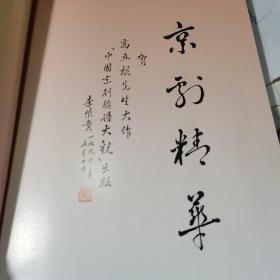 京剧精华
贺
高立根先生大作
“中国京剧脸谱大观”出版
李
一九九 年